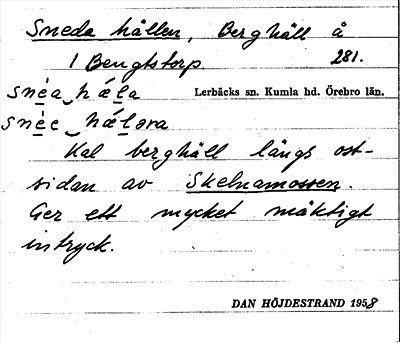 Sneda hällen, Berghäll å
1 Bengtstorp. 281.
snéa hǽla Lerbäcks sn. Kumla hd. Örebro län.
snée hǽləra
Kal berghäll längs ost-
sidan av Skelnamossen.
Ger ett mycket mäktigt
intryck.
DAN HÖJDESTRAND 1958